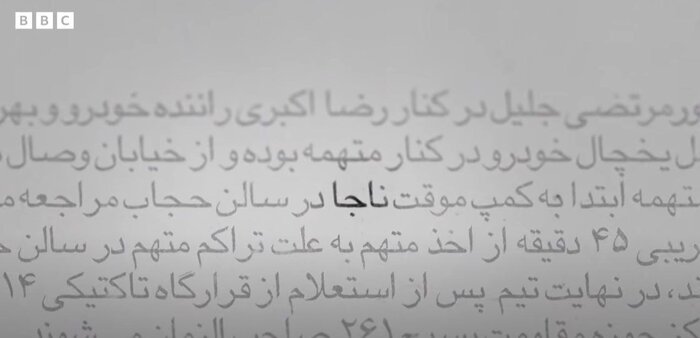 BBC
ورمرتضی جلیل در کنار رضا اکبری راننده خودرو و بهر
ل یخچال خودرو در کنار متهمه بوده و از خیابان وصال
تهمه ابتدا به کمپ موقت ناجا در سالن حجاب مراجعه م
ریبی ۴۵ دقیقه از اخذ متهم به علت تراکم متهم در سالن ح
ند، در نهایت تیم پس از استعلام از قرارگاه تاکتیکی ۱۴